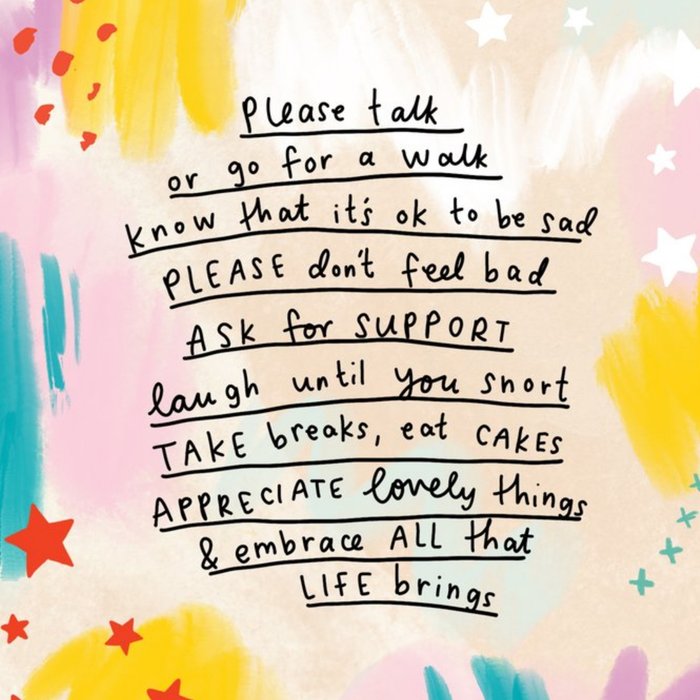 Please talk
or go for a walk
know that it's ok to be sad
PLEASE don't feel bad
ASK for SUPPORT
laugh until you snort
TAKE breaks, eat CAKES
APPRECIATE lovely things
& embrace ALL that
LIFE brings